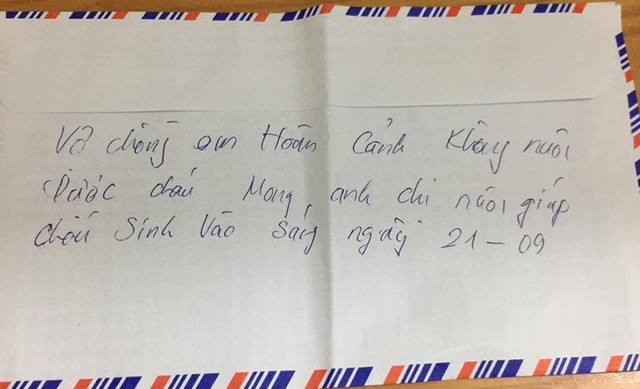 Vợ chồng em Hoàn Cảnh Không nuôi
Được cháu Mong, anh chị nuôi giúp
cháu Sinh Vào Sáng ngày 21-09